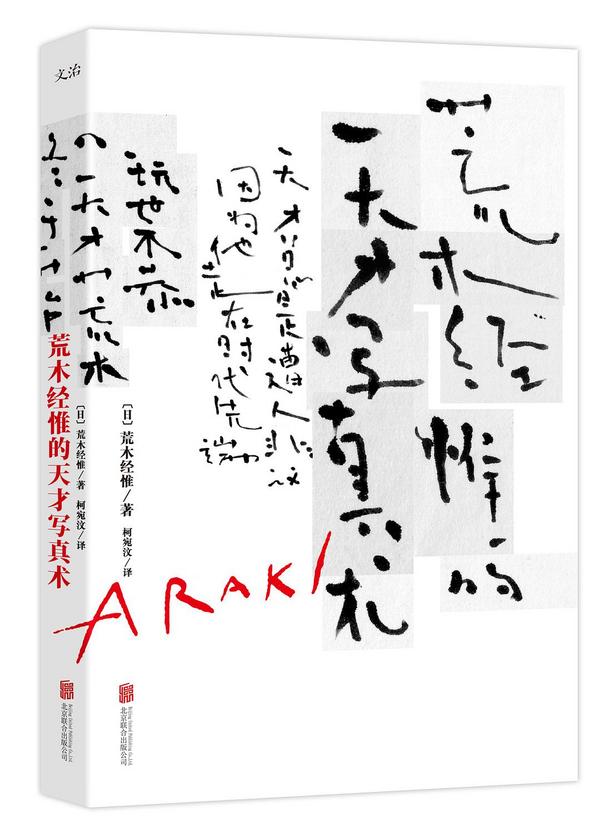 荒木经惟的
天才写真术
天才总是遭人非议
因为他走在时代先端
玩世不恭
的天才荒木
ARAKI
〔日〕荒木经惟/著
柯宛汶/译
北京联合出版公司
Beijing United Publishing Co.,Ltd.
文治
荒木经惟的天才写真术
〔日〕荒木经惟/著
柯宛汶/译
北京联合出版公司